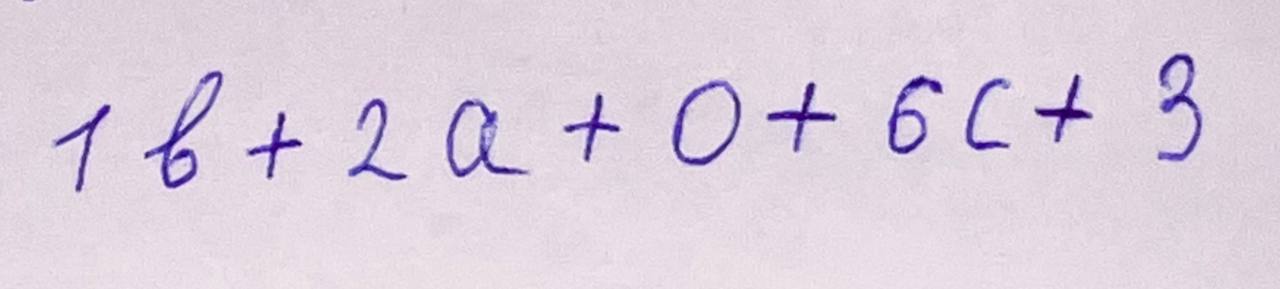 1b + 2a + 0 + 6c + 3